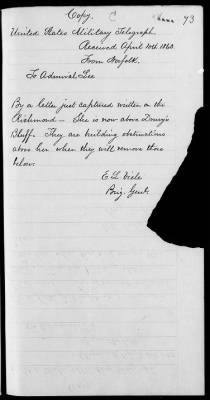 Copy.
73
United States Military Telegraph.
Received April 10th 1863.
From Norfolk.
To Admiral Lee
By a letter just captured written on the
Richmond — She is now above Drury's
Bluff. They are building obstructions
above her when they will remove those
below.
E L Viele
Brig. Genl.